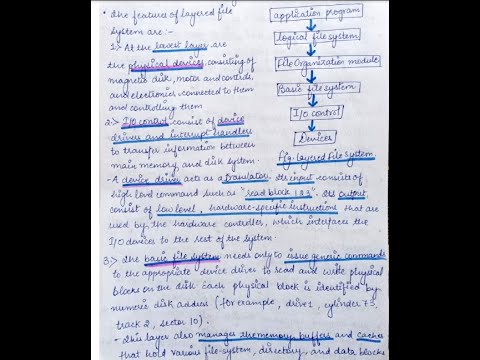 • The feature of layered file
system are:-
1:> At the lowest layer are
the physical devices consisting of
magnetic disk, motor and controls,
and electronics connected to them
and controlling them
2:> I/O control consist of device
drivers and interrupt handlers
to transfer information between
main memory and disk system.
- A device driver acts as a translator. Its input consists of
high level command such as "read block 123". Its output
consist of low level, hardware-specific instructions that are
used by the hardware controller, which interfaces the
I/O devices to the rest of the system.
3:> The basic file system needs only to issue generic commands
to the appropriate device driver to read and write physical
blocks on the disk. Each physical block is identified by
numeric disk address (for example, drive 1, cylinder 73,
track 2, sector 10).
- This layer also manages the memory buffers and caches
that hold various file-system, directory and data blocks
application program
logical file system
File Organization module
Basic file system
I/O control
Devices
Fig: Layered File System